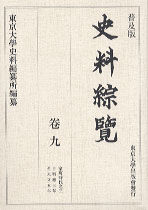 普及版
史料綜覽
卷九
東京大學史料編纂所編纂
東京大學出版會發行